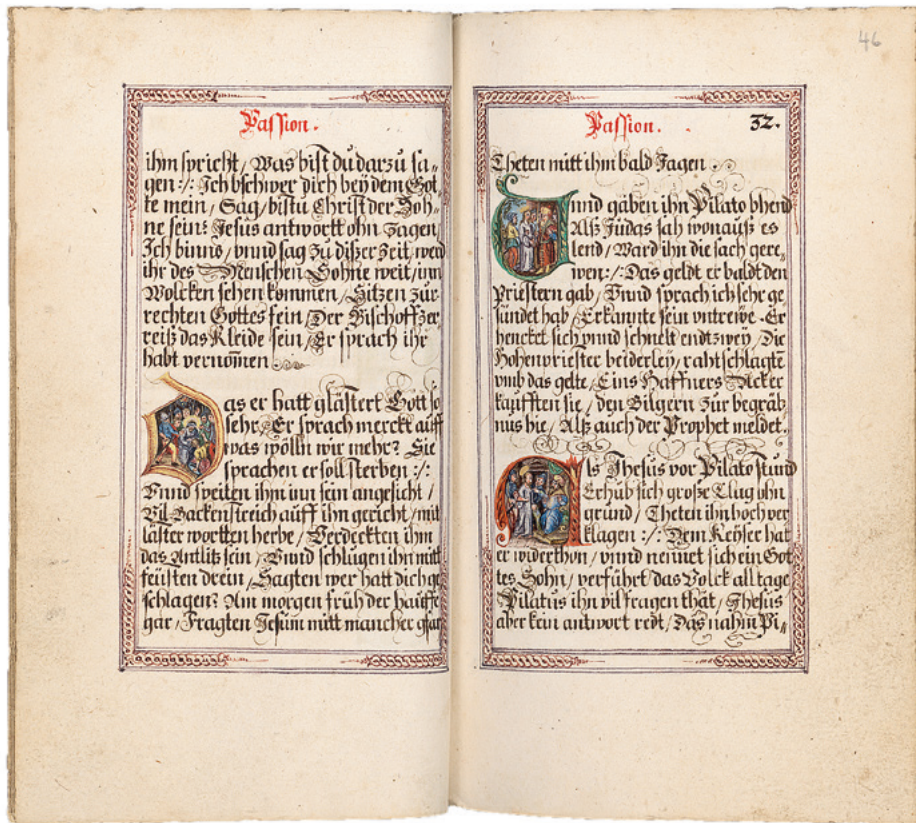 Passion.
ihm spricht / Was bist du darzu sa„
gen :/: Ich bschwer dich bey dem Got„
te mein / Sag / bistu Christ der Soh„
ne sein? Jesus antwortt ohn zagen /
Ich binns / vnnd sag zu dißer zeit / werd
ihr des Menschen Sohne weit / inn
Wolcken sehen kommen / Sitzen zur„
rechten Gottes sein / Der Bischoff zer„
reiß das Kleide sein / Er sprach ihr
habt vernom̄en
Das er hatt glästert Gott so
sehr / Er sprach merckt auff
was wölln wir mehr? Sie
sprachen er soll sterben :/:
Vnnd speiten ihm inn sein angesicht /
Vil Backenstreich auff ihn gericht / mit
läster wortten herbe / Verdeckten ihm
das Antlitz sein / Vnnd schlugen ihn mitt
feüsten drein / Sagten wer hatt dich ge
schlagen? Am morgen früh der hauffe
gar / Fragten Jesum mitt mancher gfar
46
Passion.
32.
Theten mitt ihm bald Jagen.
Vnnd gaben ihn Pilato bhend
Alß Judas sah wonauß es
lend / Ward ihn die sach gere„
wen :/: Das geldt er baldt den
Priestern gab / Vnnd sprach ich sehr ge„
sündet hab / Erkannte sein vntrewe. Er
hencket sich vnnd schnelt endtzwey / Die
Hohenpriester beiderley / rahtschlagtē
vmb das gelte / Eins Haffners Acker
kaufften sie / den Bilgern zur begräb„
nus hie / Alß auch der Prophet meldet.
Als Jhesus vor Pilato stund
Erhub sich große Clug ohn
grund / Theten ihn hoch ver
klagen :/: Dem Keÿser hat
er widerthon / vnnd nennet sich ein Got
tes Sohn / verführt das Volck all tage
Pilatus ihn vil fragen thät / Jhesus
aber kein antwort redt / Das nahm Pi„